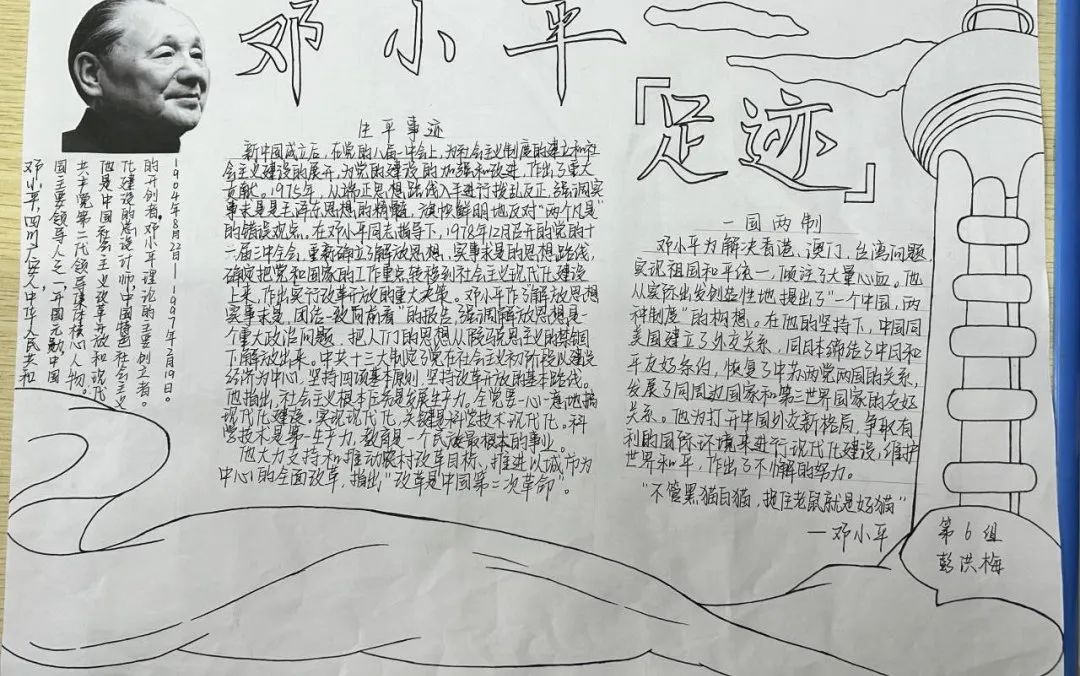 邓小平
『足迹』
邓小平,四川广安人,中华人民共和
国主要领导人之一,开国元勋,中国
共产党第二代领导集体核心人物。
他是中国社会主义改革开放和现代
化建设的总设计师,中国特色社会主义
的开创者,邓小平理论的主要创立者。
1904年8月22日—1997年2月19日。
生平事迹
新中国成立后,在党的八届一中会上,为社会主义制度的建立和社
会主义建设的展开,为党的建设的加强和改进,作出了重大
贡献。1975年,从端正思想路线入手进行拨乱反正,强调实
事求是是毛泽东思想的精髓,旗帜鲜明地反对“两个凡是”
的错误观点。在邓小平同志指导下,1978年12月召开的党的十
一届三中全会,重新确立了解放思想、实事求是的思想路线,
确定把党和国家的工作重点转移到社会主义现代化建设
上来,作出实行改革开放的重大决策。邓小平作了“解放思想
实事求是,团结一致向前看”的报告,强调解放思想是一
个重大政治问题,把人们的思想从假马克思主义的禁锢
下解放出来。中共十三大制定了党在社会主义初阶段以建设
经济为中心,坚持四项基本原则,坚持改革开放的基本路线。
他指出,社会主义根本任务是发展生产力。全党要一心一意地搞
现代化建设。实现现代化,关键是科学技术现代化。科
学技术是第一生产力,教育是一个民族最根本的事业。
他大力支持和推动农村改革目标,推进以城市为
中心的全面改革,指出“改革是中国第二次革命”。
一国两制
邓小平为解决香港、澳门、台湾问题,
实现祖国和平统一,倾注了大量心血。他
从实际出发创造性地提出了“一个中国,两
种制度”的构想。在他的坚持下,中国同
美国建立了外交关系,同日本缔结了中日和
平友好条约,恢复了中苏两党两国的关系,
发展了同周边国家和第三世界国家的友好
关系。他为打开中国外交新格局,争取有
利的国际环境来进行现代化建设,维护
世界和平,作出了不懈的努力。
“不管黑猫白猫,捉住老鼠就是好猫”
—邓小平
第6组
彭洪梅